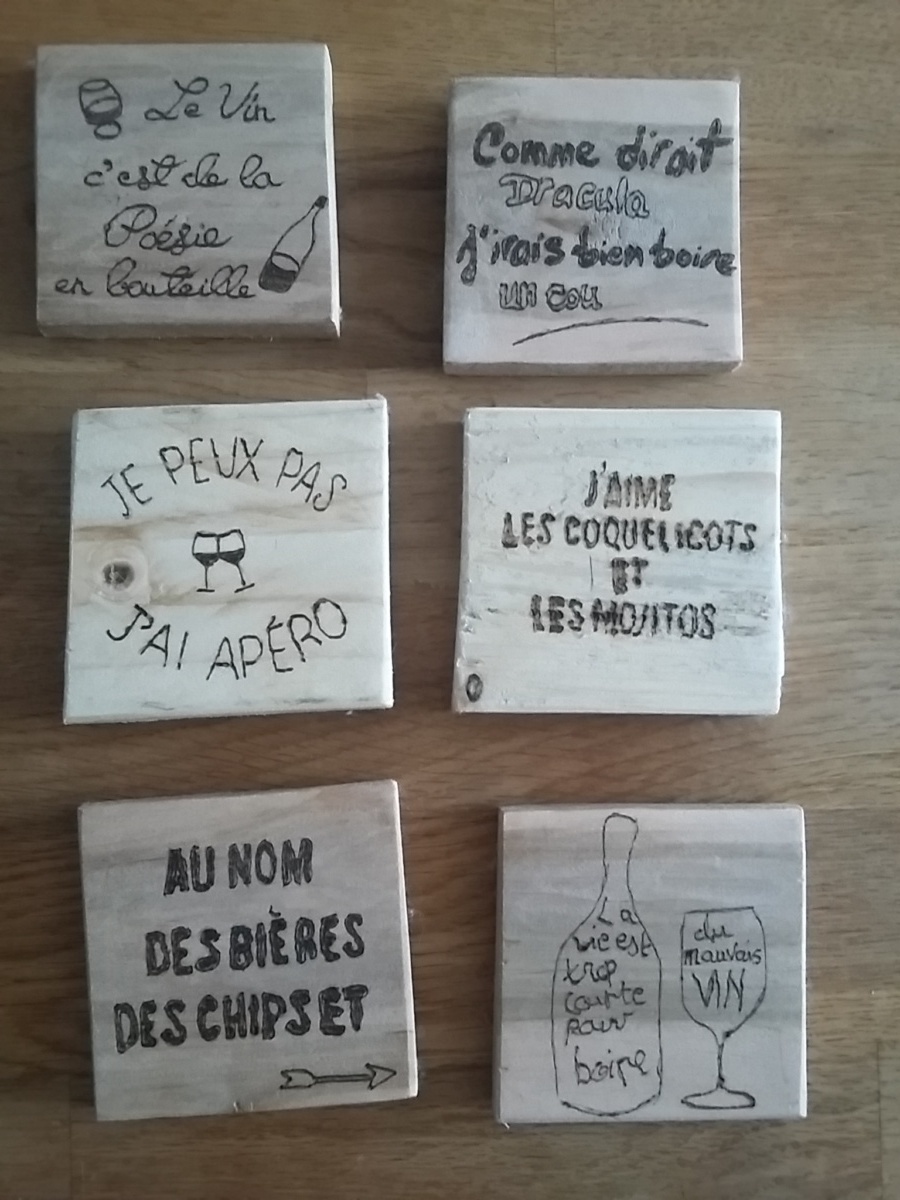 Le Vin
c'est de la
Poésie
en bouteille
Comme dirait
Dracula
j'irais bien boire
un cou
JE PEUX PAS
J'AI APÉRO
J'AIME
LES COQUELICOTS
ET
LES MOJITOS
AU NOM
DES BIÈRES
DES CHIPS ET
La
vie est
trop
courte
pour
boire
du
mauvais
VIN